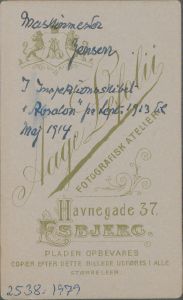 Maskinmester
Jensen
I Inspektionsskibet
"Absalon" pr Sept. 1913 til
Maj 1914.
Aage
FOTOGRAFISK ATELIER
Havnegade 37,
ESBJERG.
PLADEN OPBEVARES
COPIER EFTER DETTE BILLEDE UDFØRES I ALLE
STØRRELSER.
2538.1979